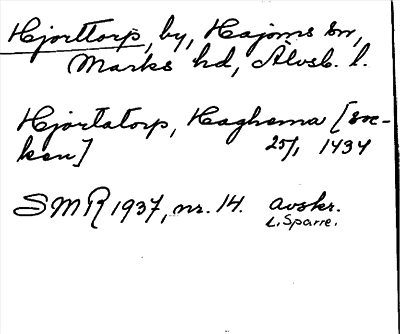 Hjorttorp, by, Hajoms sn,
Marks hd, Älvsb. l.
Hjortatorp, Haghema [soc-
ken] 25/1 1434
SMR 1937, nr. 14. avskr.
L. Sparre.